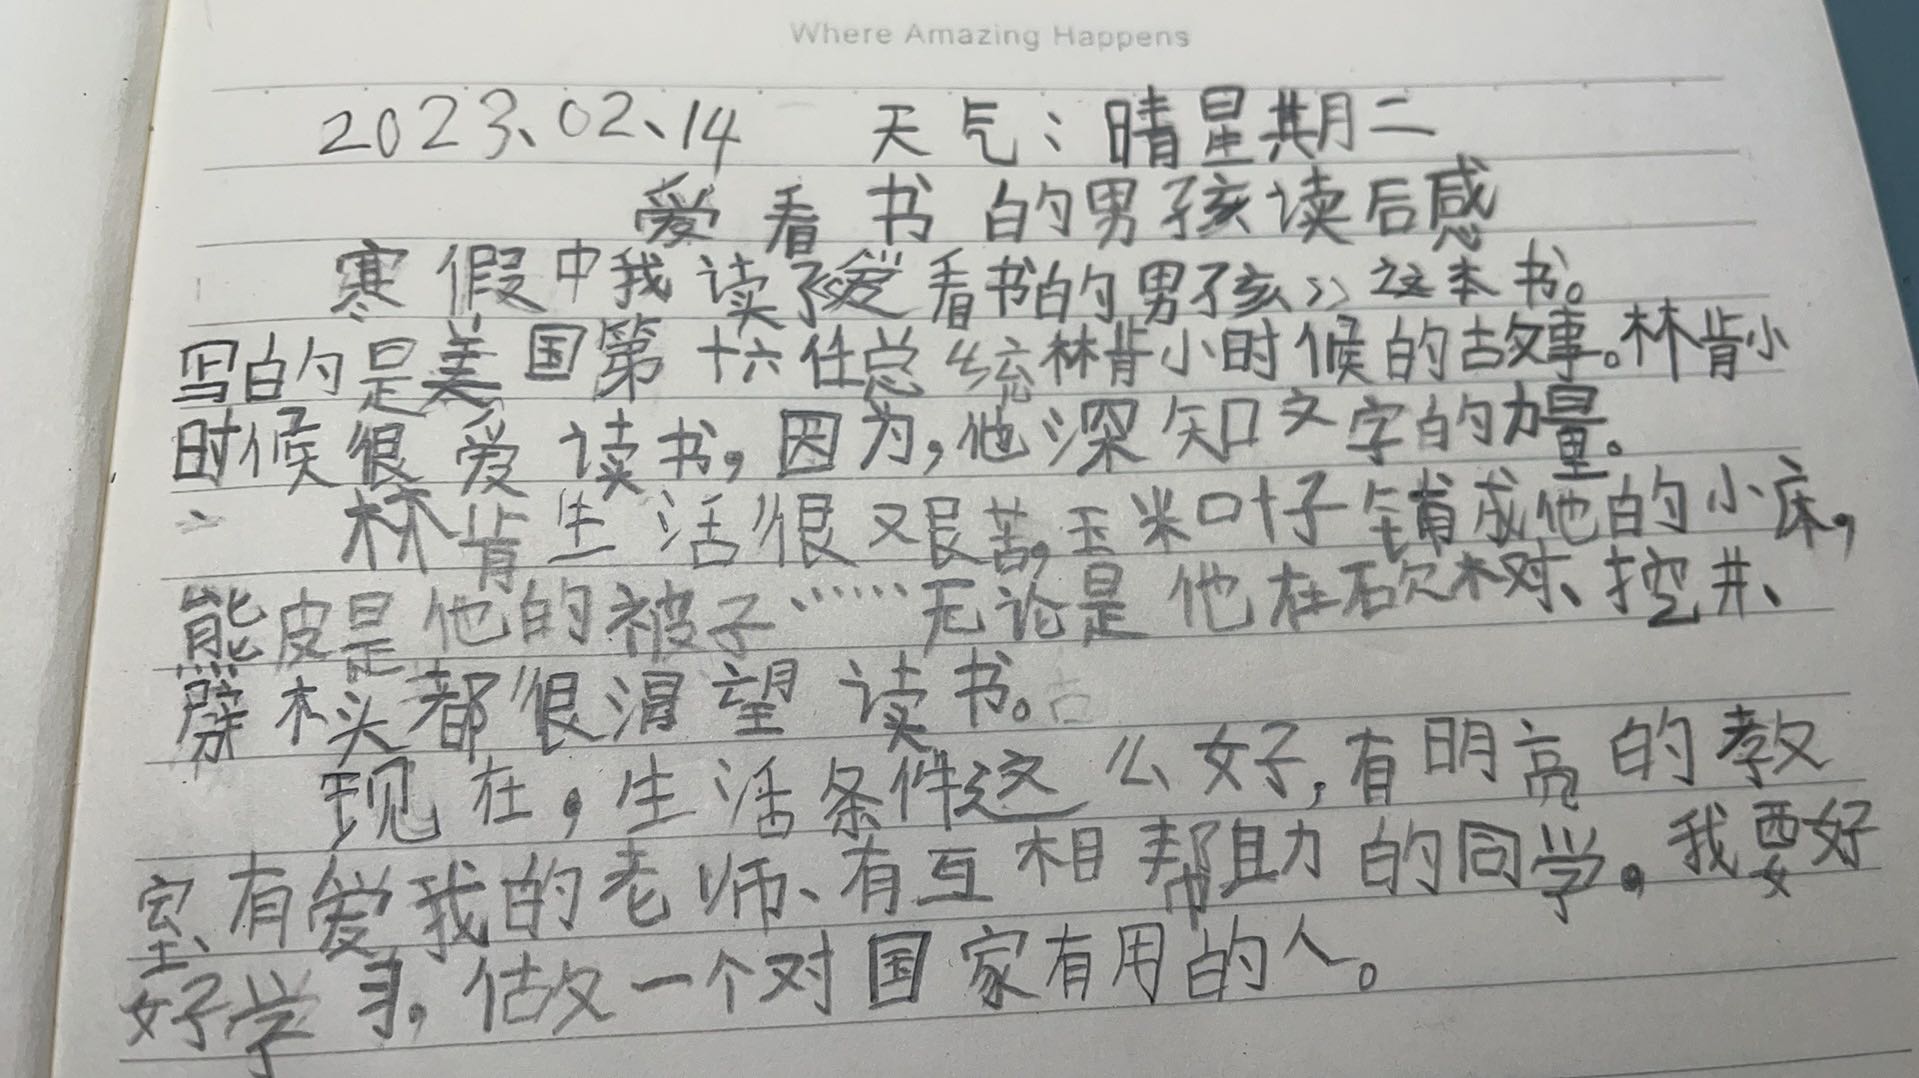 Where Amazing Happens
2023、02、14 天气：晴星期二
爱看书的男孩读后感
寒假中我读了《爱看书的男孩》这本书。
写的是美国第十六任总统林肯小时候的故事。林肯小
时候很爱读书，因为，他深知文字的力量。
林肯生活很艰苦，玉米叶子铺成他的小床，
熊皮是他的被子……无论是他在砍树、挖井、
劈木头都很渴望读书。
现在，生活条件这么好，有明亮的教
室、有爱我的老师、有互相帮助的同学。我要好
好学习，做一个对国家有用的人。